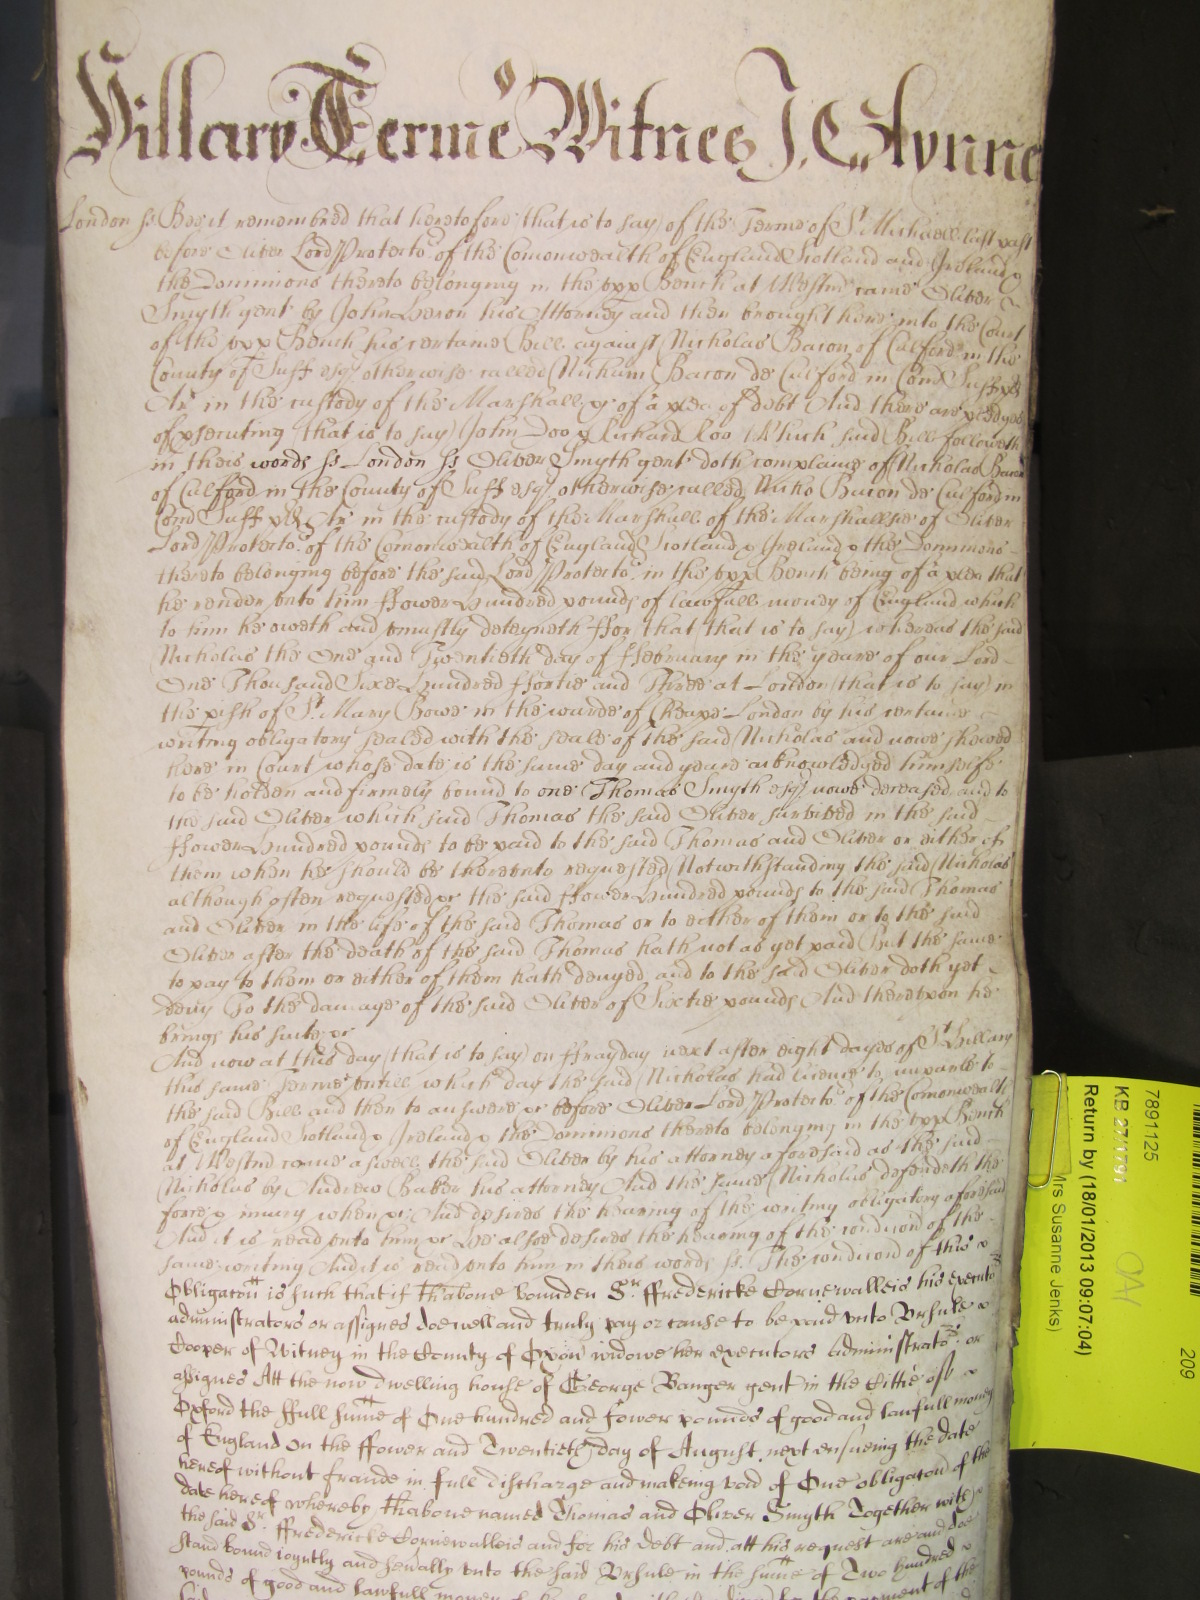 Hillary Terme Witnes J. Glynne
London ss Bee it remembred that heretofore that is to say of the Terme of St. Michaell last past
before Oliver Lord Protector of the Comonwealth of England Scotland and Ireland &
the Dominions thereto belonging in the upp Bench at Westmr came Oliver
Smyth gent by John Heron his Attorney and then brought here into the Court
of the upp Bench his certaine Bill against Nicholas Bacon of Culford in the
County of Suff esqr otherwise called Bacon de Culford in Com Suff
Ar in the custody of the Marshall &c of a plea of debt And there are pledges
of psecuting that is to say John Doo & Richard Roo Which said Bill followeth
in theis words ss London ss Oliver Smyth gent doth complaine of Nicholas Bacon
of Culford in the County of Suff esqr otherwise called Nicho Bacon de Culford in
Com Suff Ar in the custody of the Marshall of the Marshallsie of Oliver
Lord Protector of the Comonwealth of England Scotland & Ireland & the Dominions
thereto belonging before the said Lord Protector in the upp Bench being of a plea that
he render unto him ffower Hundred pounds of lawfull money of England which
to him he oweth and uniustly deteyneth ffor that that is to say whereas the said
Nicholas the One and Twentieth day of ffebruary in the yeare of our Lord
One Thousand Sixe Hundred ffortie and Three at London that is to say in
the pish of St. Mary Bowe in the warde of Cheape London by his certaine
writing obligatory sealed with the seale of the said Nicholas and nowe shewed
here in Court whose date is the same day and yeare acknowledged himselfe
to be holden and firmely bound to one Thomas Smyth esqr nowe deceased and to
the said Oliver which said Thomas the said Oliver survived in the said
ffower Hundred pounds to be paid to the said Thomas and Oliver or either of
them when he should be thereunto requested Notwithstanding the said Nicholas
although often requested &c the said ffower Hundred pounds to the said Thomas
and Oliver in the life of the said Thomas or to either of them or to the said
Oliver after the death of the said Thomas hath not as yet paid But the same
to pay to them or either of them hath denyed and to the said Oliver doth yet
deny To the damage of the said Oliver of Sixtie pounds And thereupon he
brings his suite &c
And now at this day that is to say on ffryday next after eight dayes of St. Hillary
this same Terme untill which day the said Nicholas had licence to imparle to
the said Bill and then to answere &c before Oliver Lord Protector of the Comonwealth
of England Scotland & Ireland & the Dominions thereto belonging in the upp Bench
at Westmr came aswell the said Oliver by his attorney aforesaid as the said
Nicholas by Andrew Baker his attorney And the same Nicholas defendeth the
force & iniury when &c And desires the hearing of the writing obligatory aforesaid
And it is read unto him &c He alsoe desires the hearing of the condicion of the
same writing And it is read unto him in theis words ss. The condicion of this
Obligacon is such that if thabove bounden Sr. ffredericke Cornewalleis his executors
administrators or assignes doe well and truly pay or cause to be paid unto Ursule
Cooper of Witney in the County of Oxon widowe her executors Administrators or
assignes Att the now dwelling house of George Banger gent in the Cittie of
Oxford the ffull sume of One hundred and fower pounds of good and lawfull money
of England on the ffower and Twentieth day of August next ensueing the date
hereof without fraude in full discharge and makeing void of One obligacon of the
date hereof whereby thabove named Thomas and Oliver Smyth Together with
the said Sr. ffredericke Cornewalleis and for his Debt and att his request are and doe
stand bound ioyntly and sevally unto the said Ursule in the sume of Two hundred
pounds of good and lawfull money of the payment of the
7891125
KB 27/1791
Return by (18/01/2013 09:07:04)
Mrs Susanne Jenks)
209